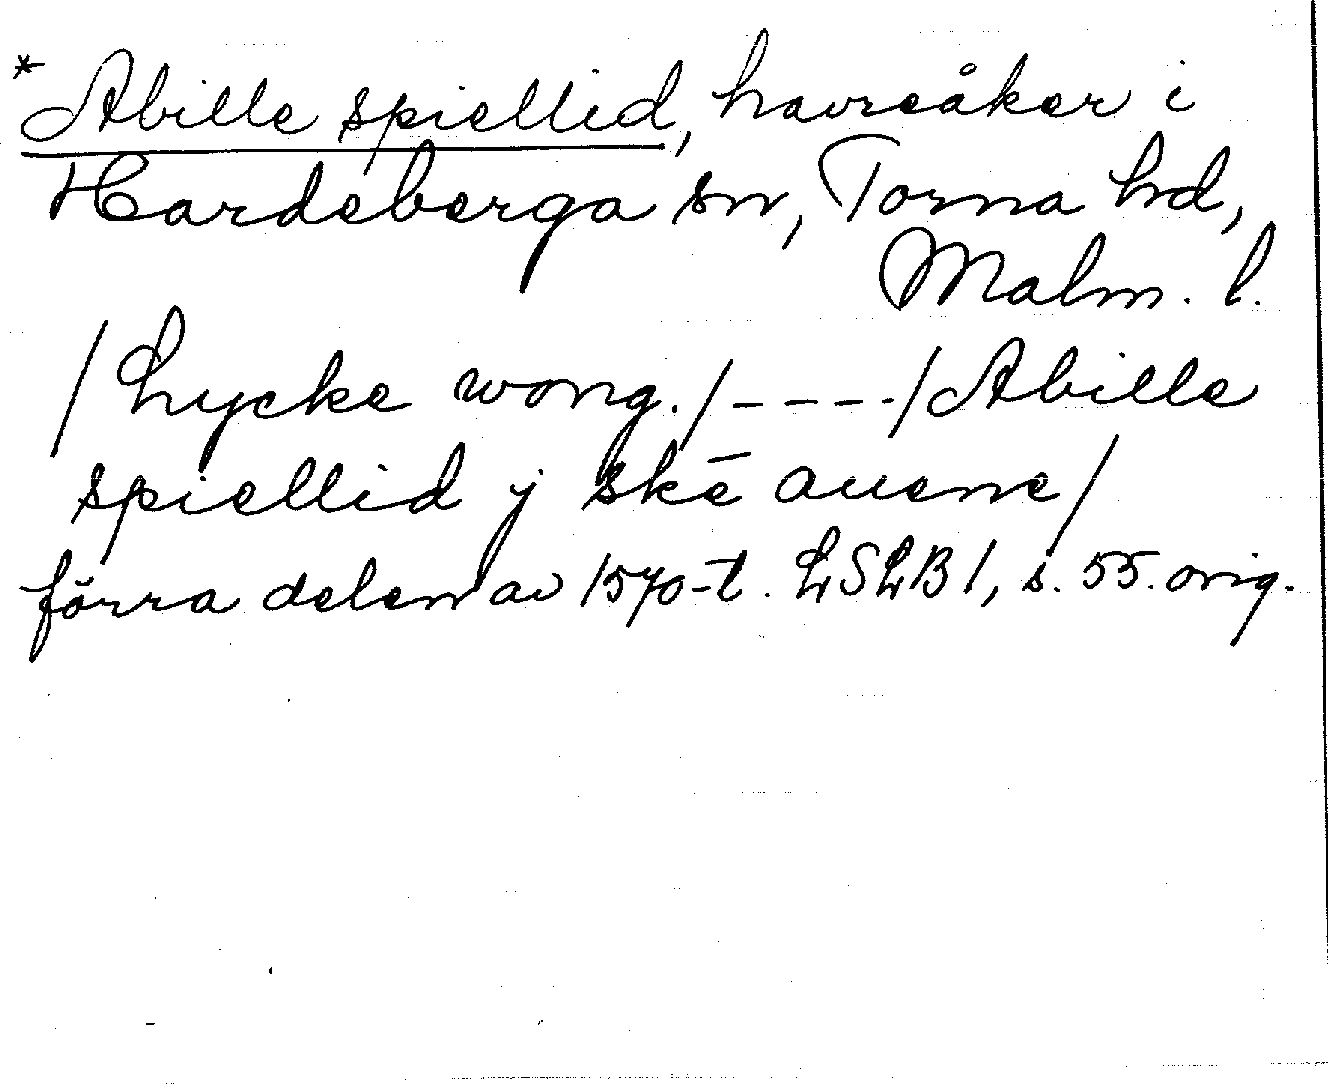 *Abille spiellid, havreåker i
Hardeberga sn, Torna hd,
Malm. l.
/Lycke wong./----/Abille
spiellid j skē auene/
förra delen av 1570-t. LSLB 1, s. 55. orig.